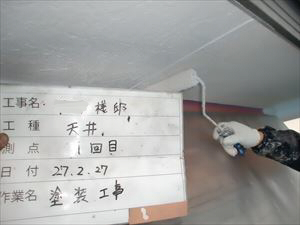 工事名 様邸
工種 天井
測点 1回目
日付 27.2.27
作業名 塗装工事